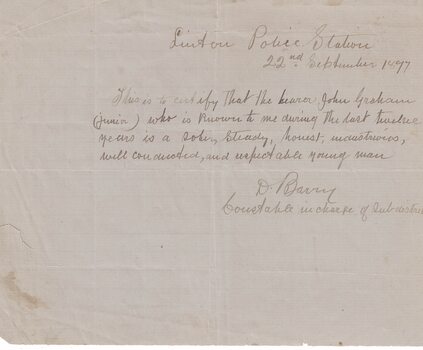 Linton Police Station
22nd September 1897
This is to certify that the bearer John Graham
(junior) who is known to me during the last twelve
years is a sober, steady, honest, industrious,
well conducted, and respectable young man
D. Barry
Constable in charge of Sub district